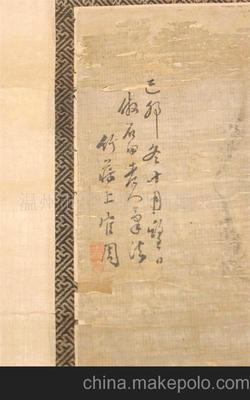 己卯冬十月望日
倣石田老人筆法
竹莊上官周
china.makepolo.com